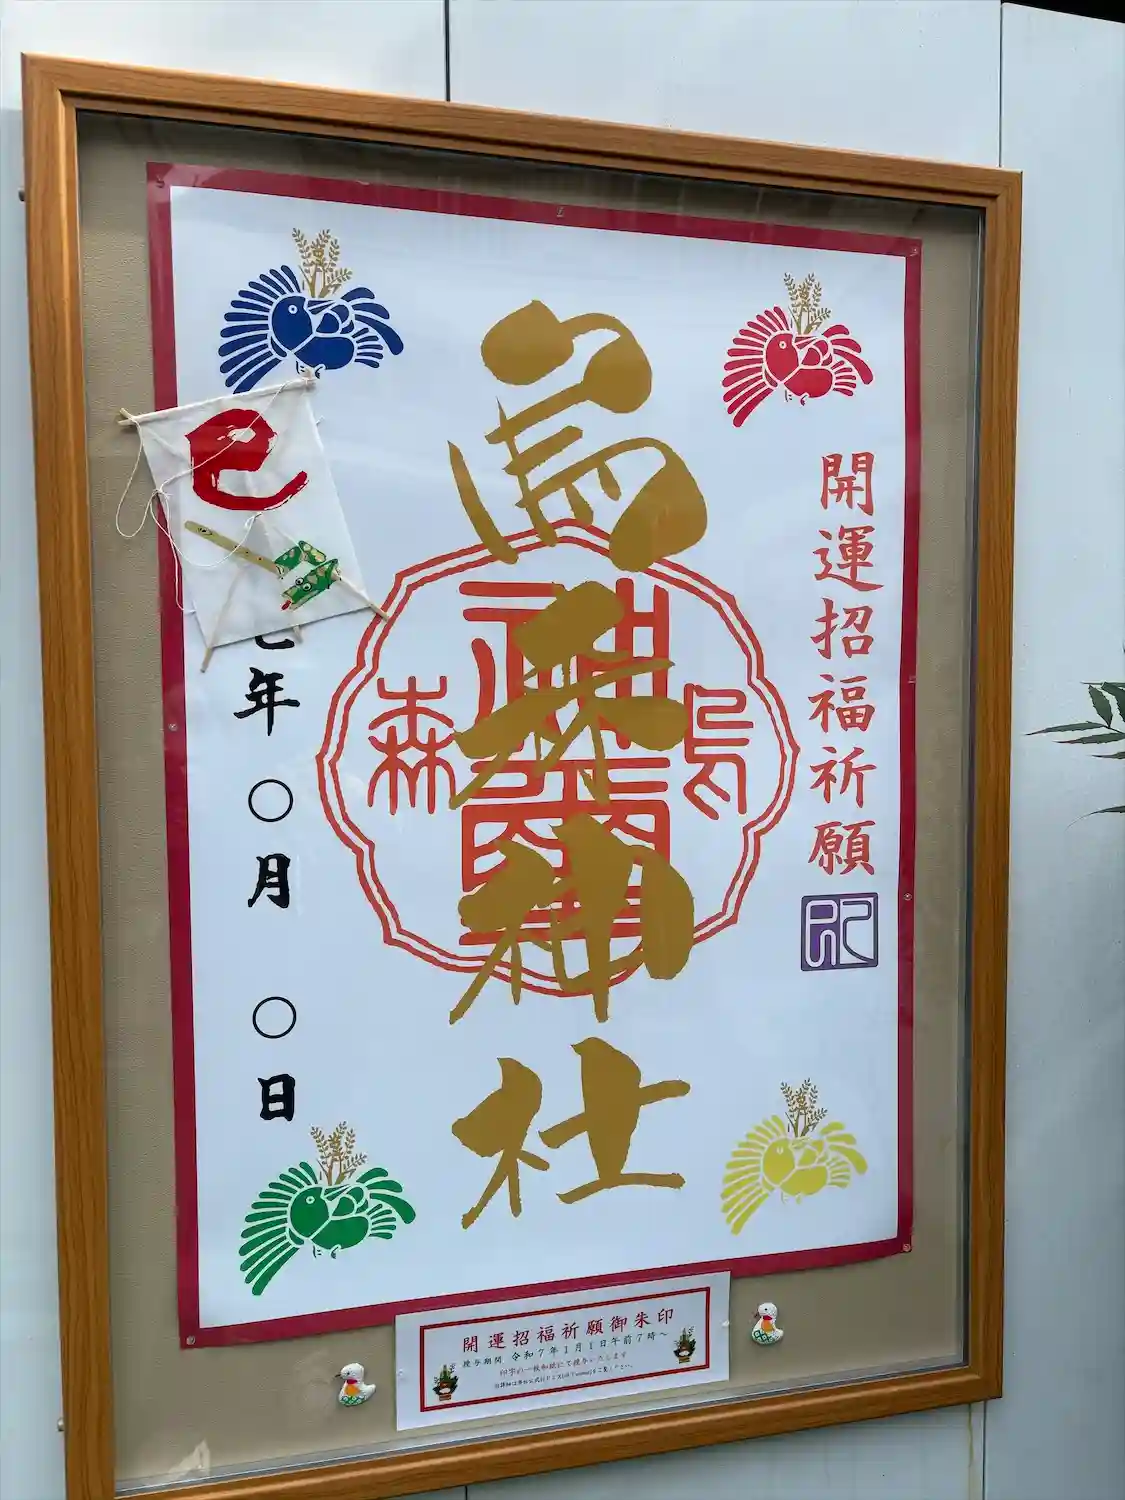 開運招福祈願
烏森神社
烏
神璽
森
七年 〇月 〇日
巳
開運招福祈願御朱印
授与期間 令和7年1月1日午前7時〜